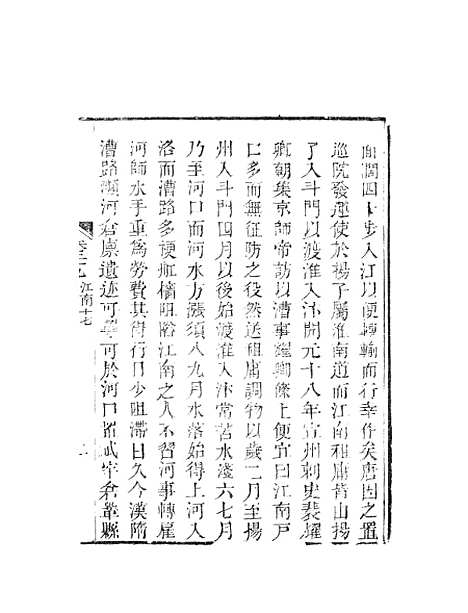 面闊四十步入江以便轉輸而行幸作矣唐因之置
巡院發運使於楊子屬淮南道而江南租庸皆山揚
了入斗門以渡淮入汴開元十八年宣州刺史裴耀
卿朝集京師帝訪以漕事耀卿條上便宜曰江南戸
口多而無征防之役然送租庸調物以歲二月至揚
州入斗門四月以後始渡淮入汴常苦水淺六七月
乃至河口而河水方漲須八九月水落始得上河入
洛而漕路多梗船檣阻隘江南之人不習河事轉雇
河師水手重為勞費其得行日少阻滯日久今漢隋
漕路瀕河倉廩遺迹可尋可於河口置武牢倉鞏縣
江南十七